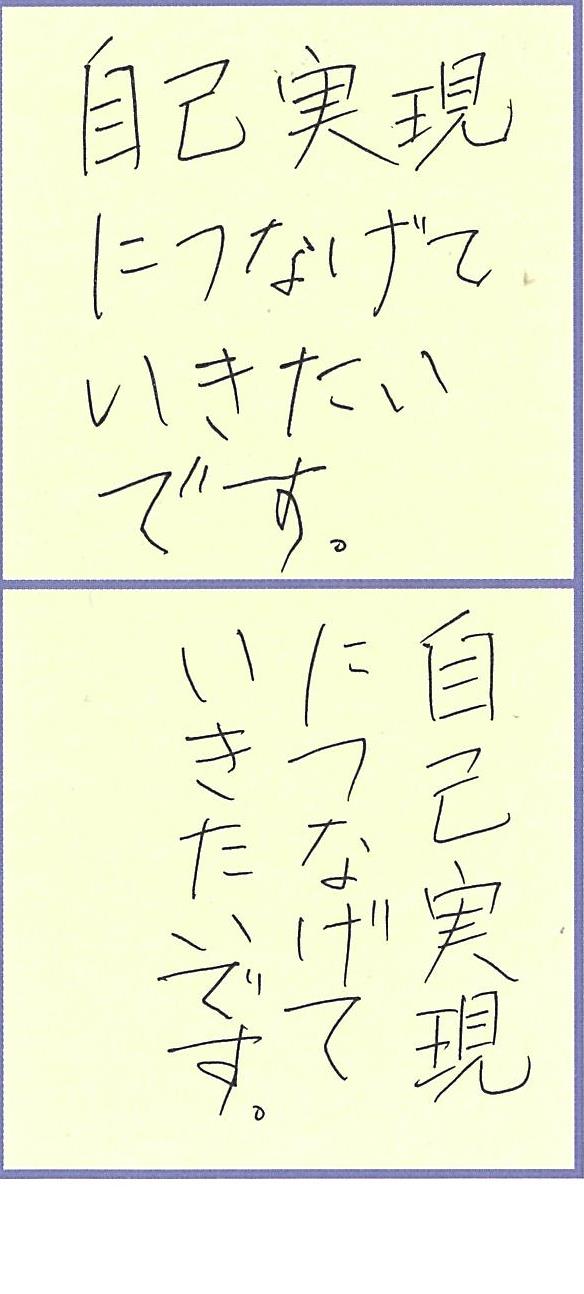 自己実現
につなげて
いきたい
です。
自己実現
につなげて
いきたいです。